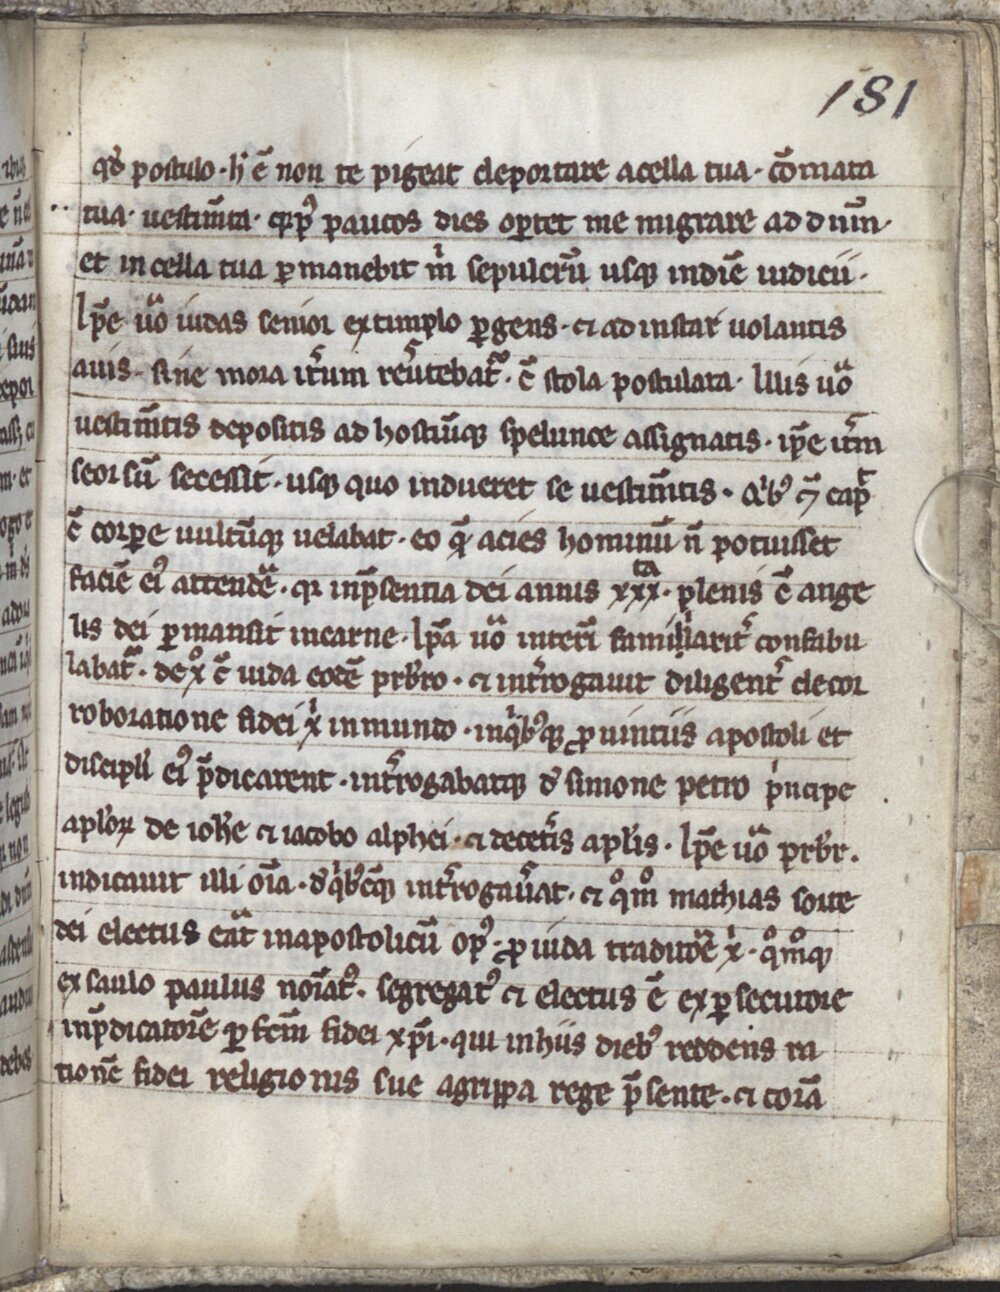 181
qd̕ postulo · h̕ ē non te pigeat deportare a cella tua · cōmata
tua · uestim̄ta · q̄r p̄ paucos dies op̄tet me migrare ad dnm̄ ·
et in cella tua p̱manebit m̕ sepulcrū usq̨ in diē iudicii ·
Ip̄e u̕o iudas senior extimplo p̱gens · ⁊ ad instar uolantis
auis · sine mora it̕um reu̕tebat̕ · c̄ stola postulata · Illis u̕o
uestim̄tis depositis ad hostiūq̨ spelunce assignatis · ip̄e it̕m
seorsū secessit · usq̨ quo indueret se uestim̄tis · q̕b̕
c̄ corpe uultūq̨ uelabat · eo q̄ acies hominū n̄ potuisset
faciē ei̕ attendē · q̄r in p̄sentia dei annis xxx.ta plenis c̄ ange
lis dei p̱mansit in carne · Ip̄a u̕o inte̕ri familiarit̕ confabu
labat̕ · de x̊ c̄ iuda eodē prb̄ro · ⁊ int̕rogauit diligent̕ de cor
roboratione fidei x̕ in mundo · in q̕b̕q̨ ꝓuintiis apostoli et
discipli̕ ei̕ p̄dicarent · int̕rogabatq̨ d̕ simone petro p̕ncipe
apl̄or̨ de ioh̄e ⁊ iacobo alphei · ⁊ de cet̕is apl̄is · Ip̄e u̕o prb̄r ·
indicauit illi oīa · d̕ q̕b̕cq̨ int̕rogau̕at · ⁊ q̊m̊ mathias sorte
dei electus eāt in apostolicū op̕ · ꝓ iuda traditore x̕ · q̊m̊q̨
ex saulo paulus noīat̕ · segregat̕ ⁊ electus ē ex p̱secutore
in p̄dicatorē p̱fc̄m fidei xp̄i · qui in hiis dieb̕ reddens ra
tionē fidei religionis sue agrippa rege p̄sente · ⁊ corā